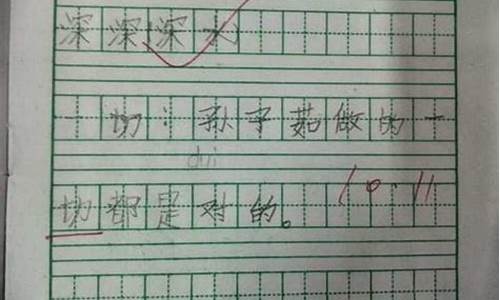 深深深水
一切:孙子茹做的一
dui
切都是对的。
10.11